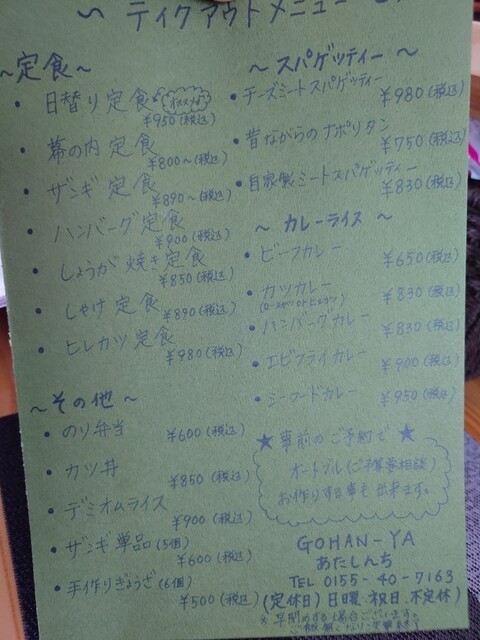 ～ テイクアウトメニュー ～
～定食～
・日替り定食 オススメ
¥950(税込)
・幕の内定食
¥800～(税込)
・ザンギ定食
¥890～(税込)
・ハンバーグ定食
¥900(税込)
・しょうが焼き定食
¥850(税込)
・しゃけ定食
¥890(税込)
・ヒレカツ定食
¥980(税込)
～その他～
・のり弁当
¥600(税込)
・カツ丼
¥850(税込)
・デミオムライス
¥900(税込)
・ザンギ単品(5個)
¥600(税込)
・手作りぎょうざ(6個)
¥500(税込)
～スパゲッティー～
・チーズミートスパゲッティー
¥980(税込)
・昔ながらのナポリタン
¥750(税込)
・自家製ミートスパゲッティー
¥830(税込)
～カレーライス～
・ビーフカレー
¥650(税込)
・カツカレー
¥830(税込)
・ハンバーグカレー
¥830(税込)
・エビフライカレー
¥900(税込)
・シーフードカレー
¥950(税込)
★事前のご予約で★
オードブル(ご予算要相談)
お作りする事も出来ます。
GOHAN-YA
あたしんち
TEL 0155-40-7163
(定休日)日曜、祝日、不定休